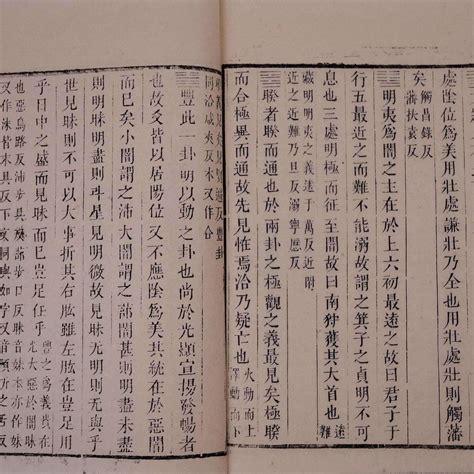 處陰位為美用壯處謙壯乃全也用壯處壯則觸藩
矣觸昌錄反藩扶袁反
䷣明夷為闇之主在於上六初最遠之故曰君子于
行五最近之而難不能溺故謂之箕子之貞明不可
息也三處明極而征至闇故曰南狩獲其大首也遠
藏明明夷之義遠于萬反近附
近之近難乃旦反溺寧歷反
䷥睽者睽而通也於兩卦之極觀之義最見矣極睽
而合極異而通故先見怪焉洽乃疑亡也火動而上澤動而下
同洽咸夾反本又作合
䷶豐此一卦明以動之卦也尚於光顯宣揚發暢者
也故爻皆以居陽位又不應陰為美其統在於惡闇
而已矣小闇謂之沛大闇謂之蔀闇甚則明盡未盡
則明昧明盡則斗星見明微故見昧无明則无與乎
世見昧則不可以大事折其右肱雖左肱在豈足用
乎日中之盛而見昧而已豈足任乎豐之為義貴在光大惡於闇昧
也惡烏路反沛步貝反